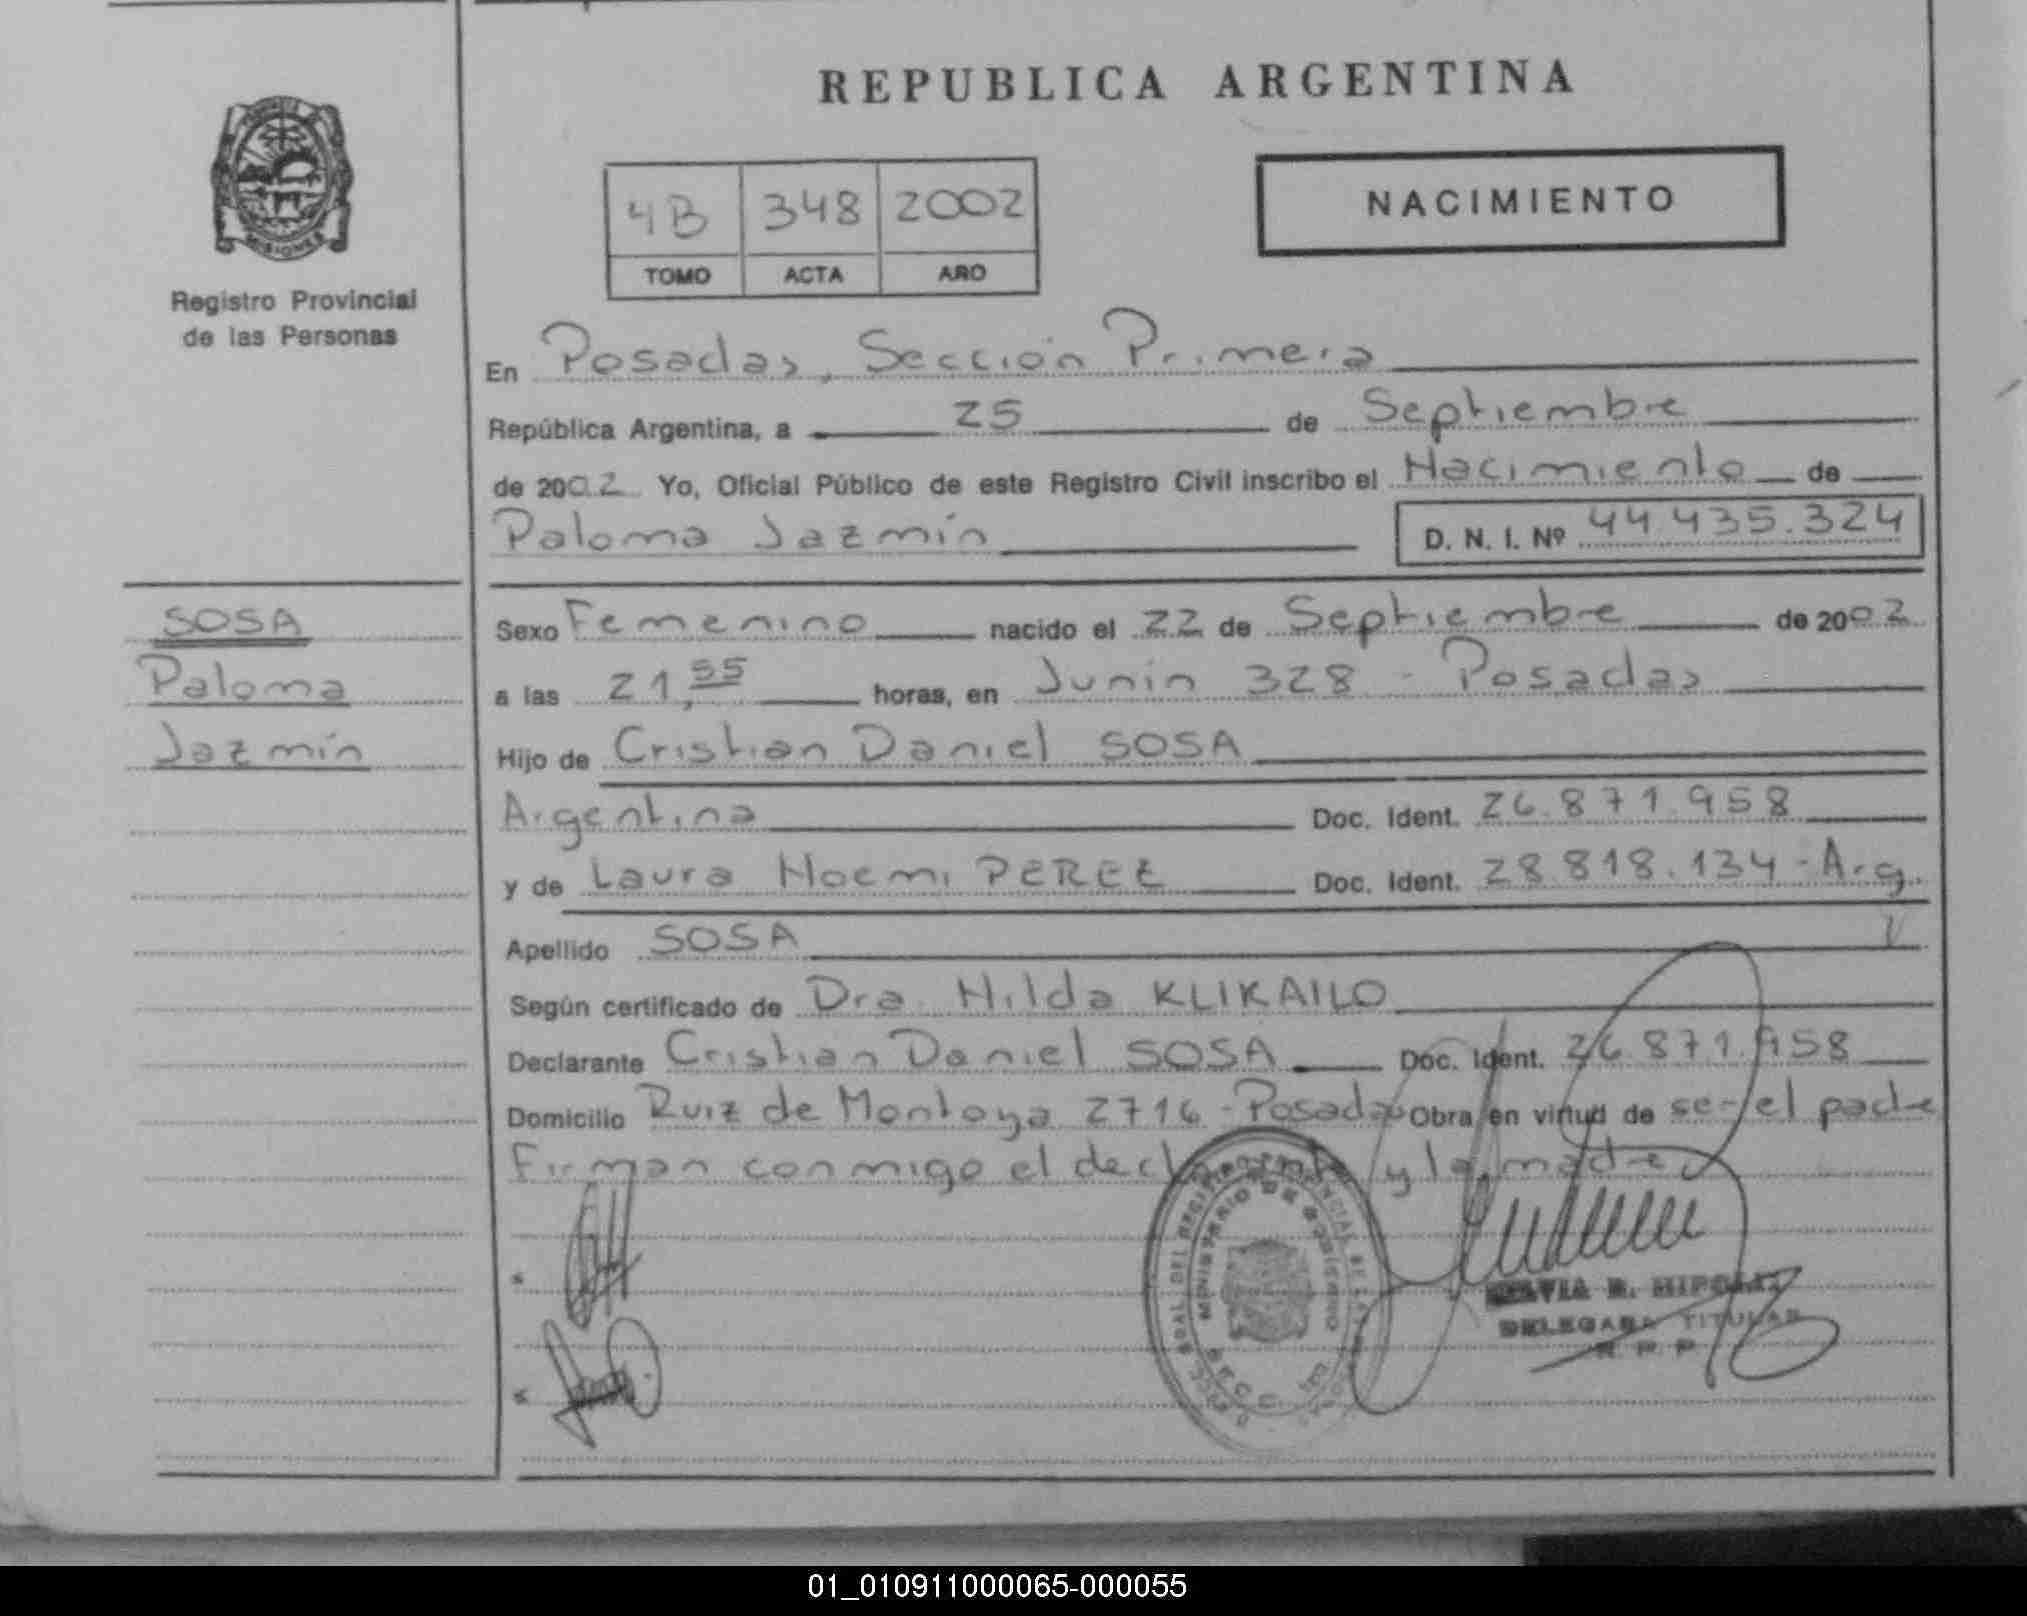 REPUBLICA ARGENTINA
MISIONES
Registro Provincial
de las Personas
4B 348 2002
TOMO ACTA AÑO
NACIMIENTO
En Posadas, Sección Primera
República Argentina, a 25 de Septiembre
de 2002 Yo, Oficial Público de este Registro Civil inscribo el Nacimiento de
Paloma Jazmín D. N. I. Nº 44.435.324
SOSA
Paloma
Jazmín
Sexo Femenino nacido el 22 de Septiembre de 2002
a las 21,55 horas, en Junín 328 - Posadas
Hijo de Cristian Daniel SOSA
Argentina Doc. Ident. 26.871.958
y de Laura Noemi PEREZ Doc. Ident. 28.818.134 - Arg.
Apellido SOSA
Según certificado de Dra. Hilda KLIKAILO
Declarante Cristian Daniel SOSA Doc. Ident. 26.871.958
Domicilio Ruiz de Montoya 2716 - Posadas Obra en virtud de ser el padre
Firman conmigo el declarante y la madre
MINISTERIO DE GOBIERNO
DELEGADA TITULAR
R. P. P.
01_010911000065-000055